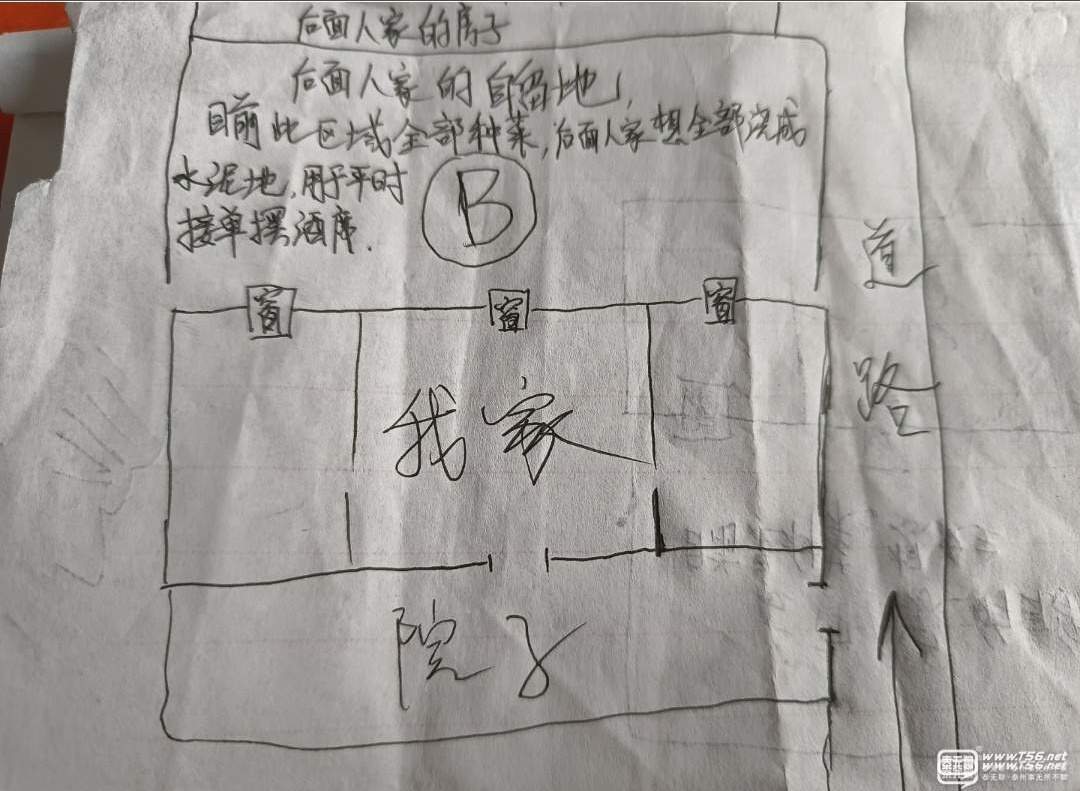 后面人家的房子
后面人家的自留地,
目前此区域全部种菜,后面人家想全部浇成
水泥地,用于平时
接单摆酒席.
B
道
路
窗
窗
窗
我家
院子
泰无聊
www.T56.net
www.T56.net
泰无聊·泰州事无所不聊